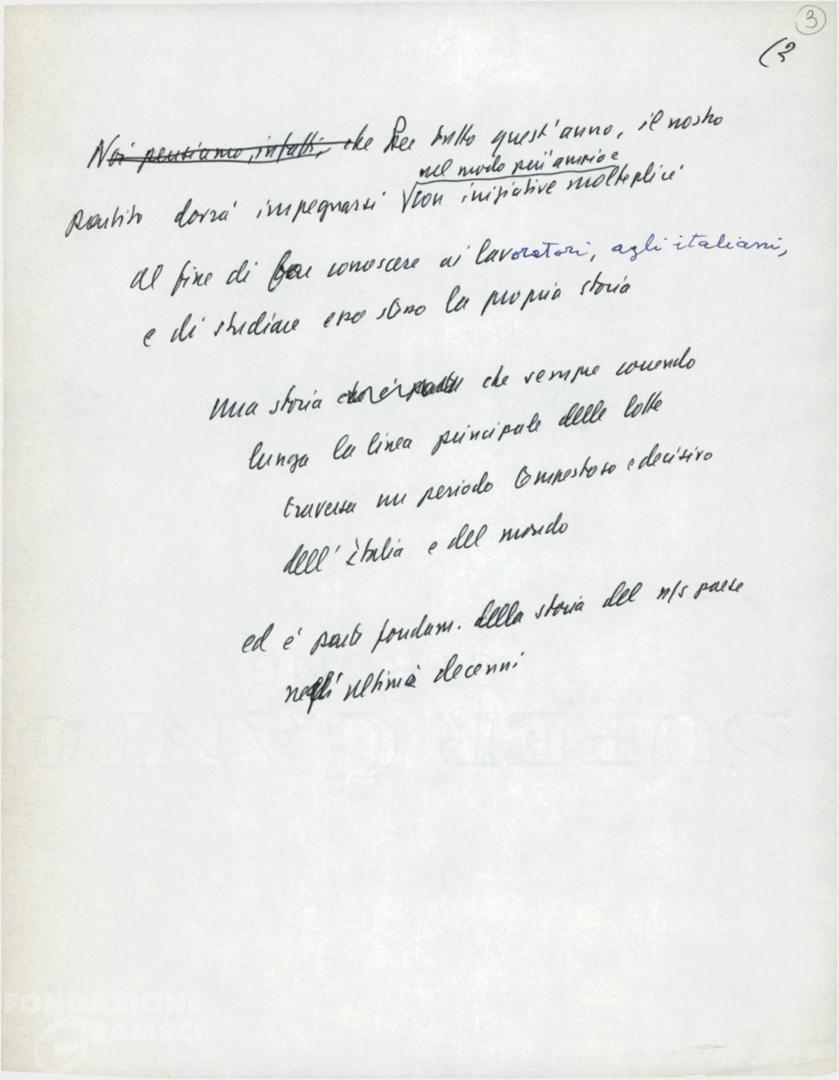 3
(2
Noi pensiamo, infatti, che Per tutto quest'anno, il nostro
nel modo più ampio e
partito dovrà impegnarsi √con iniziative molteplici
al fine di far conoscere ai lavoratori, agli italiani,
e di studiare esso stesso la propria storia
una storia che sempre correndo
lungo la linea principale delle lotte
traversa un periodo tempestoso e decisivo
dell'Italia e del mondo
ed è parte fondam. della storia del n/s paese
negli ultimi decenni
FONDAZIONE
GRAMSCI